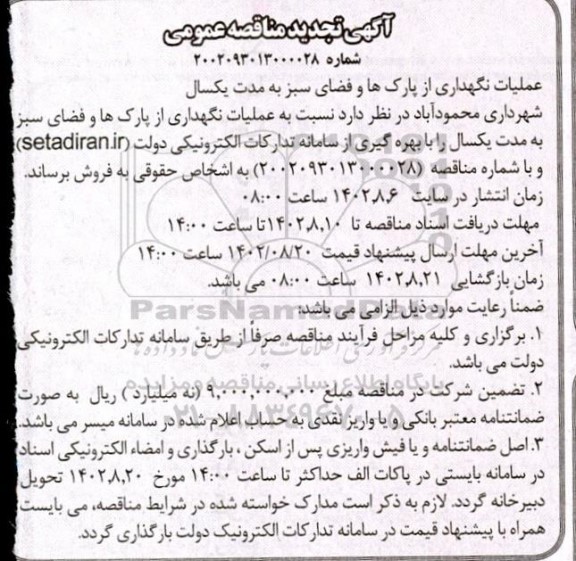 آگهی تجدید مناقصه عمومی
شماره ۲۰۰۲۰۹۳۰۱۳۰۰۰۰۲۸
عملیات نگهداری از پارک ها و فضای سبز به مدت یکسال
شهرداری محمودآباد در نظر دارد نسبت به عملیات نگهداری از پارک ها و فضای سبز
به مدت یکسال را با بهره گیری از سامانه تدارکات الکترونیکی دولت (setadiran.ir)
و با شماره مناقصه (۲۰۰۲۰۹۳۰۱۳۰۰۰۰۲۸) به اشخاص حقوقی به فروش برساند.
زمان انتشار در سایت ۱۴۰۲،۸،۶ ساعت ۰۸:۰۰
مهلت دریافت اسناد مناقصه تا ۱۴۰۲،۸،۱۰ تا ساعت ۱۴:۰۰
آخرین مهلت ارسال پیشنهاد قیمت ۱۴۰۲/۰۸/۲۰ ساعت ۱۴:۰۰
زمان بازگشایی ۱۴۰۲،۸،۲۱ ساعت ۰۸:۰۰ می باشد.
ضمناً رعایت موارد ذیل الزامی می باشد:
ParsNamadData
۱. برگزاری و کلیه مراحل فرآیند مناقصه صرفا از طریق سامانه تدارکات الکترونیکی
دولت می باشد.
پایگاه اطلاع رسانی مناقصه و مزایده
۲. تضمین شرکت در مناقصه مبلغ ۹,۰۰۰,۰۰۰,۰۰۰ (نه میلیارد) ریال به صورت
ضمانتنامه معتبر بانکی و یا واریز نقدی به حساب اعلام شده در سامانه میسر می باشد.
۳. اصل ضمانتنامه و یا فیش واریزی پس از اسکن ، بارگذاری و امضاء الکترونیکی اسناد
در سامانه بایستی در پاکات الف حداکثر تا ساعت ۱۴:۰۰ مورخ ۱۴۰۲،۸،۲۰ تحویل
دبیرخانه گردد. لازم به ذکر است مدارک خواسته شده در شرایط مناقصه، می بایست
همراه با پیشنهاد قیمت در سامانه تدارکات الکترونیک دولت بارگذاری گردد.